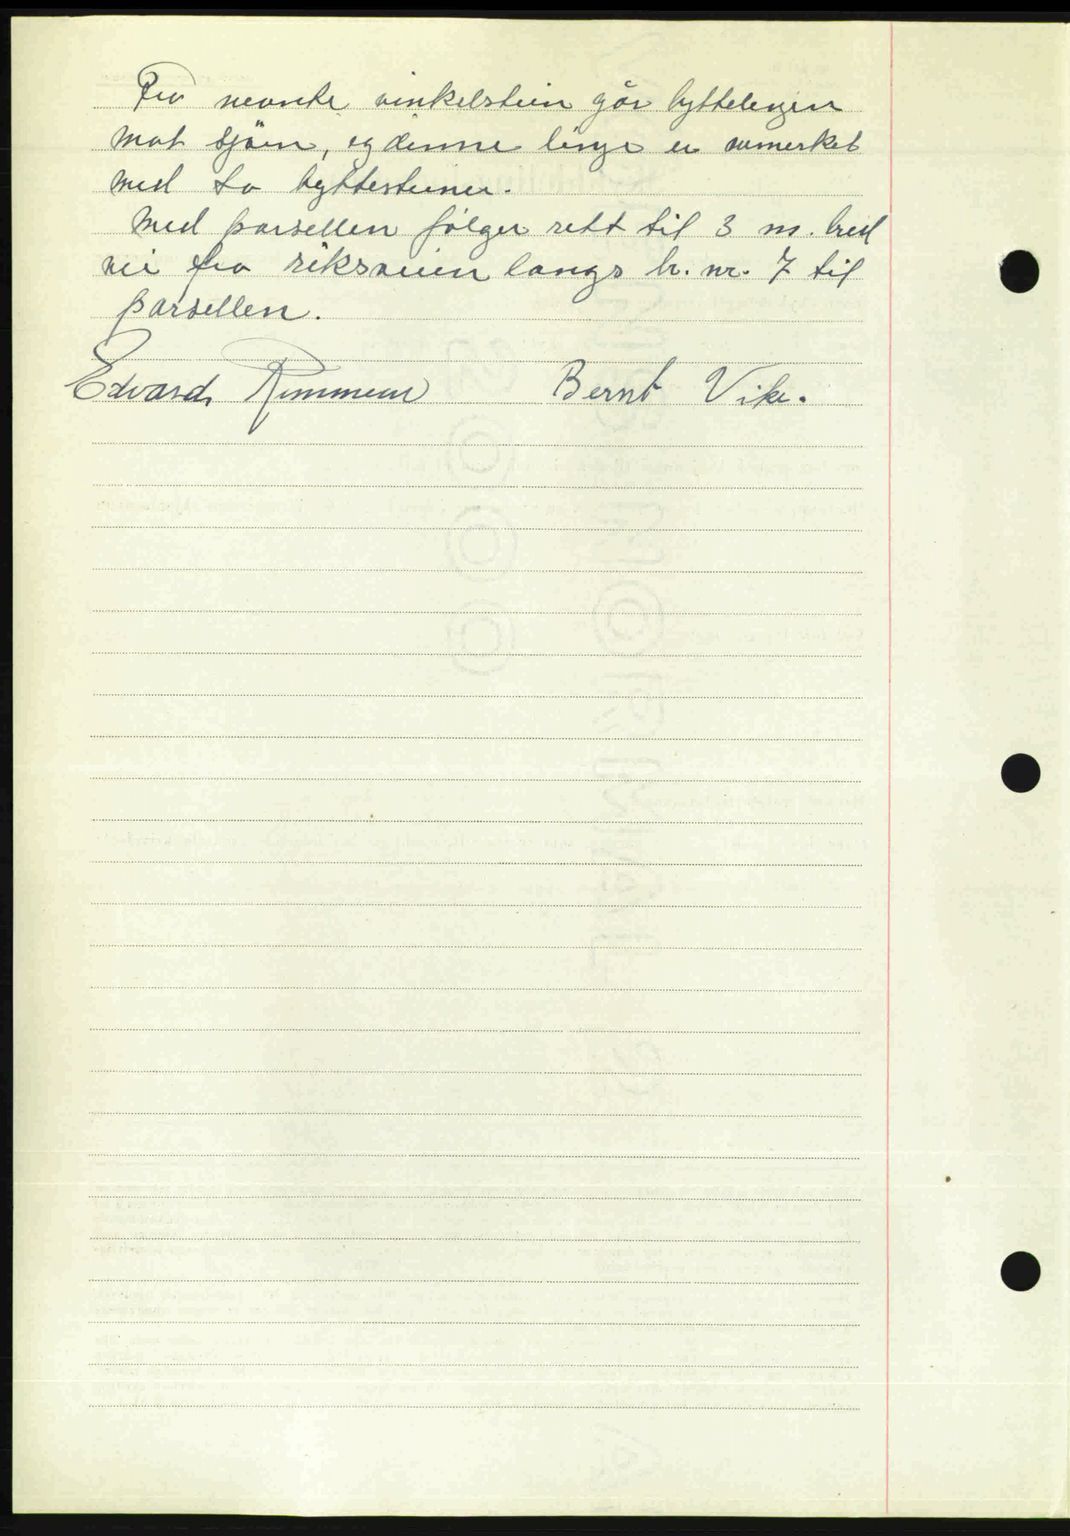 Fra nevnte vinkelstein går byttelinjen
mot sjøen, og denne linje er avmerket
med to byttesteiner.
Med parsellen følger rett til 3 m. bred
vei fra riksveien langs br. nr. 7 til
parsellen.
Edvard Rimmen Bernt Vike.